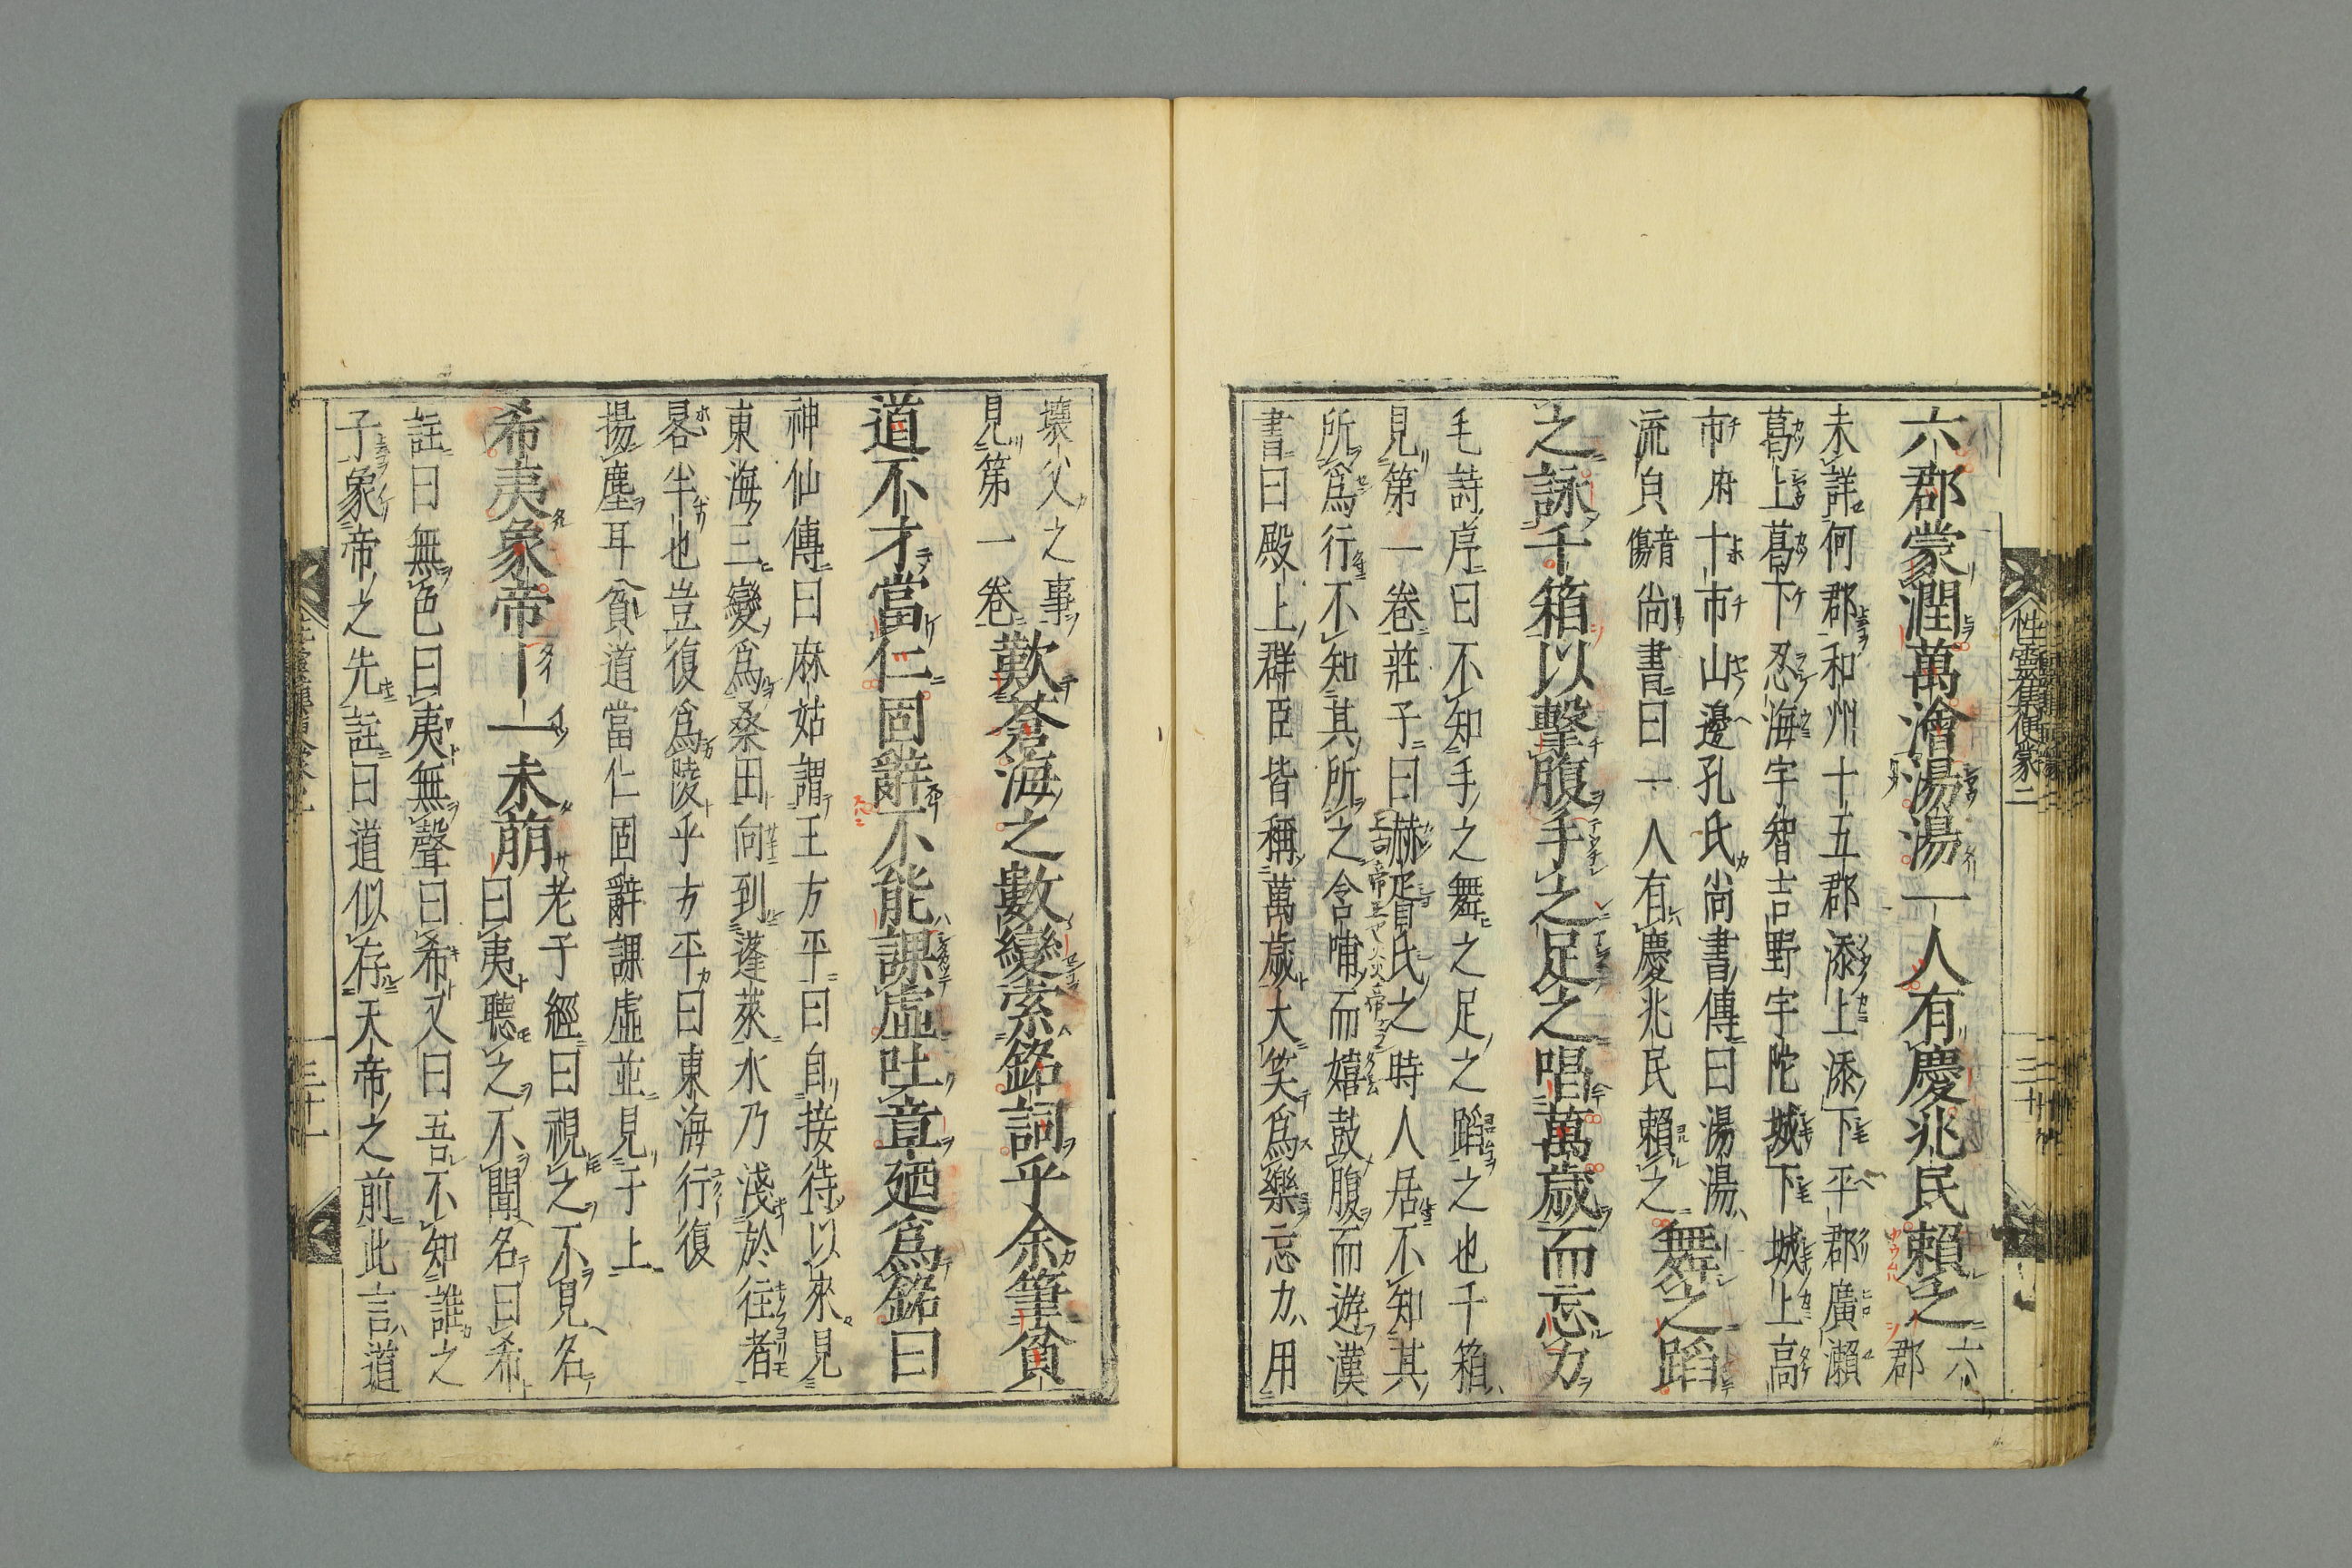 六郡蒙潤萬澮湯湯一人有慶兆民賴之六
郡
未詳何郡和州十五郡添上添下平郡廣瀨
葛上葛下忍海宇智吉野宇陀城下城上高
市府十市山邊孔氏尚書傳曰湯湯
流皃音傷尚書曰一人有慶兆民賴之舞之蹈
之詠千箱以擊腹手之足之唱萬歲而忘力
毛詩序曰不知手之舞之足之蹈之也千箱
見第一卷莊子曰赫胥氏之時人居不知其
所爲行不知其所之含哺而嬉鼓腹而遊漢
書曰殿上群臣皆稱萬歲大笑爲樂忘力用
性靈集便蒙二
三十
壤父之事
見第一卷歎蒼海之數變索銘詞乎余筆貧
道不才當仁固辭不能課虛吐章廼爲銘曰
神仙傳曰麻姑謂王方平曰自接待以來見
東海三變爲桑田向到蓬萊水乃淺於往者
畧半也豈復爲陵乎方平曰東海行復
揚塵耳貧道當仁固辭課虛並見于上
希夷象帝一一未萠老子經曰視之不見名
曰夷聽之不聞名曰希
註曰無色曰夷無聲曰希又曰吾不知誰之
子象帝之先註曰道似存天帝之前此言道
三十一